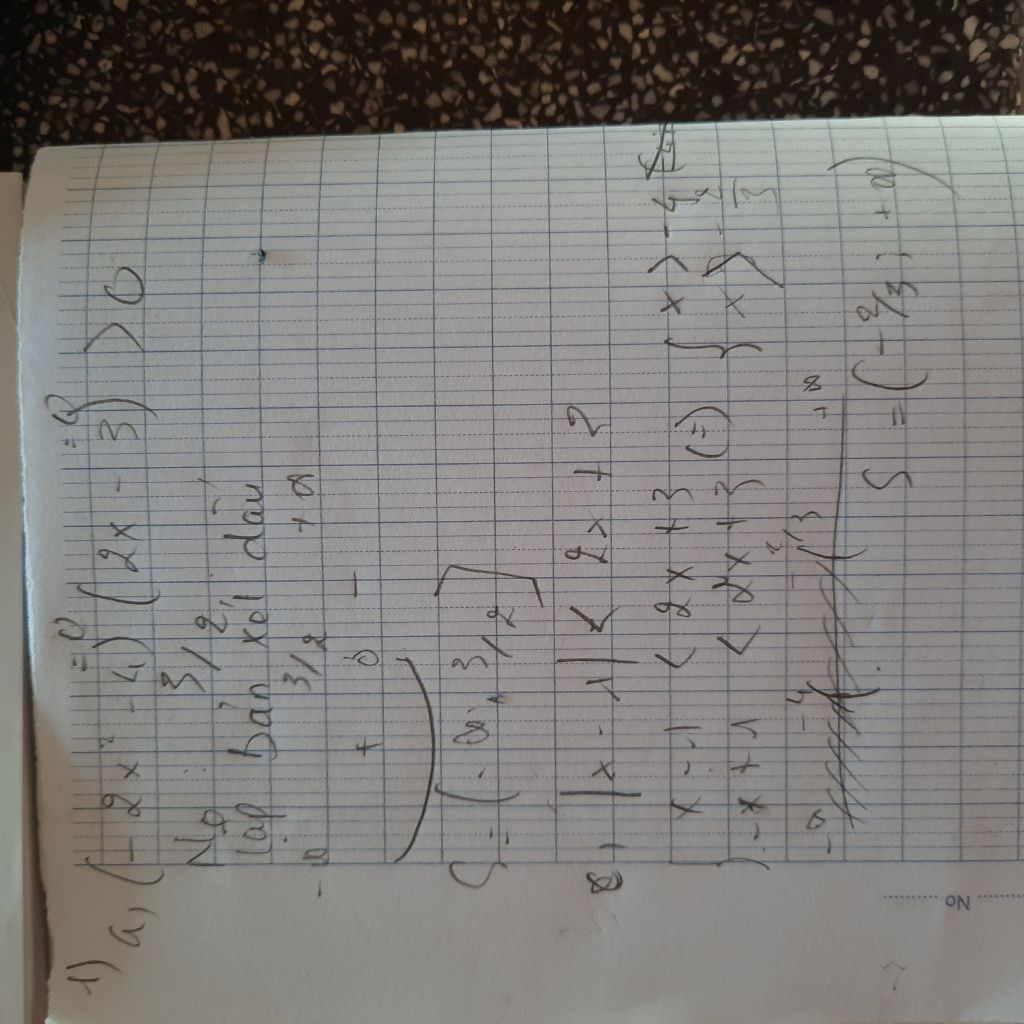 1) a, (-2x² - 4) (2x - 3) > 0
= 0 = 0
No : 3/2
lập bản xét dấu
-∞ 3/2 +∞
+ 0 -
S = (-∞, 3/2]
|x - 1| < 2x + 2
x - 1 < 2x + 3 { x > -4
-x + 1 < 2x + 3 (=) { x > -2/3
-∞ -4 -2/3 +∞
S = (-2/3, +∞)
No